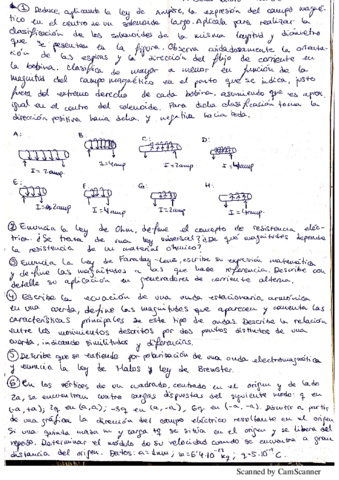 ① Deduce, aplicando la ley de Ampère, la expresión del campo magné-
tico en el centro de un solenoide largo. Aplícala para realizar la
clasificación de los solenoides de la misma longitud y diámetro
que se presentan en la figura. Observa cuidadosamente la orienta-
ción de las espiras y la dirección del flujo de corriente en
la bobina. Clasifica de mayor a menor en función de la
magnitud del campo magnético en el punto que se indica, justo
fuera del extremo derecho de cada bobina, asumiendo que es aprox.
igual en el centro del solenoide. Para dicha clasificación toma la
dirección positiva hacia dcha. y negativa hacia izda.
A: B: C: D:
I=2amp I=4amp I=2amp I=4amp
E: F: G: H:
I=2amp I=4amp I=2amp I=4amp
② Enuncia la ley de Ohm, define el concepto de resistencia eléc-
trica. ¿Se trata de una ley universal? ¿De qué magnitudes depende
la resistencia de un material óhmico?
③ Enuncia la ley de Faraday-Lenz, escribe su expresión matemática
y define las magnitudes a las que hace referencia. Describe con
detalle su aplicación en generadores de corriente alterna.
④ Escribe la ecuación de una onda estacionaria armónica
en una cuerda, define las magnitudes que aparecen y comenta las
características principales de este tipo de ondas. Describe la relación
entre los movimientos descritos por dos puntos distintos de una
cuerda, indicando similitudes y diferencias.
⑤ Describe que se entiende por polarización de una onda electromagnética
y enuncia la ley de Malus y ley de Brewster.
⑥ En los vértices de un cuadrado, centrado en el origen y de lado
2a, se encuentran cuatro cargas dispuestas del siguiente modo: q en
(-a,+a); 2q en (a,a); -3q en (a,-a); 6q en (-a,-a). Discutir a partir
de una gráfica la dirección del campo eléctrico resultante en el origen
Si una partícula masa m y carga q se sitúa en el origen y se libera del
reposo. Determinar el módulo de su velocidad cuando se encuentra a gran
distancia del origen. Datos:
Scanned by CamScanner